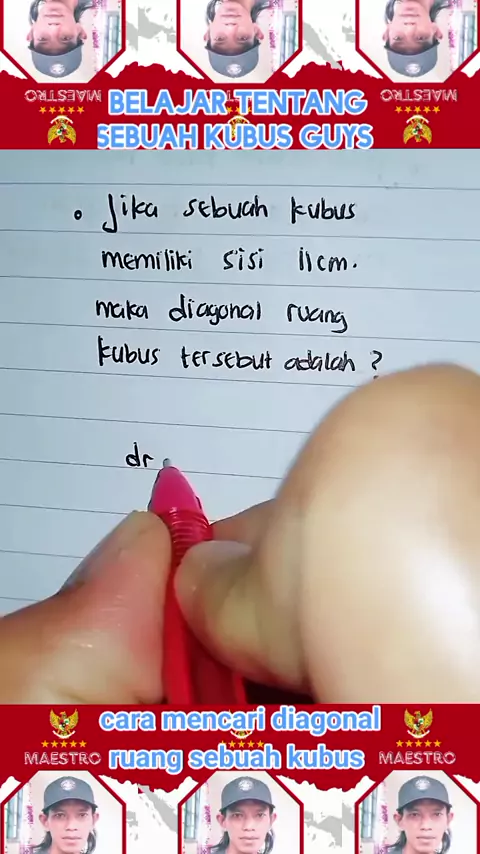 MAESTRO
MAESTRO
BELAJAR TENTANG
SEBUAH KUBUS GUYS
Jika sebuah kubus
memiliki sisi 11cm.
maka diagonal ruang
kubus tersebut adalah ?
dr
cara mencari diagonal
ruang sebuah kubus
MAESTRO
MAESTRO